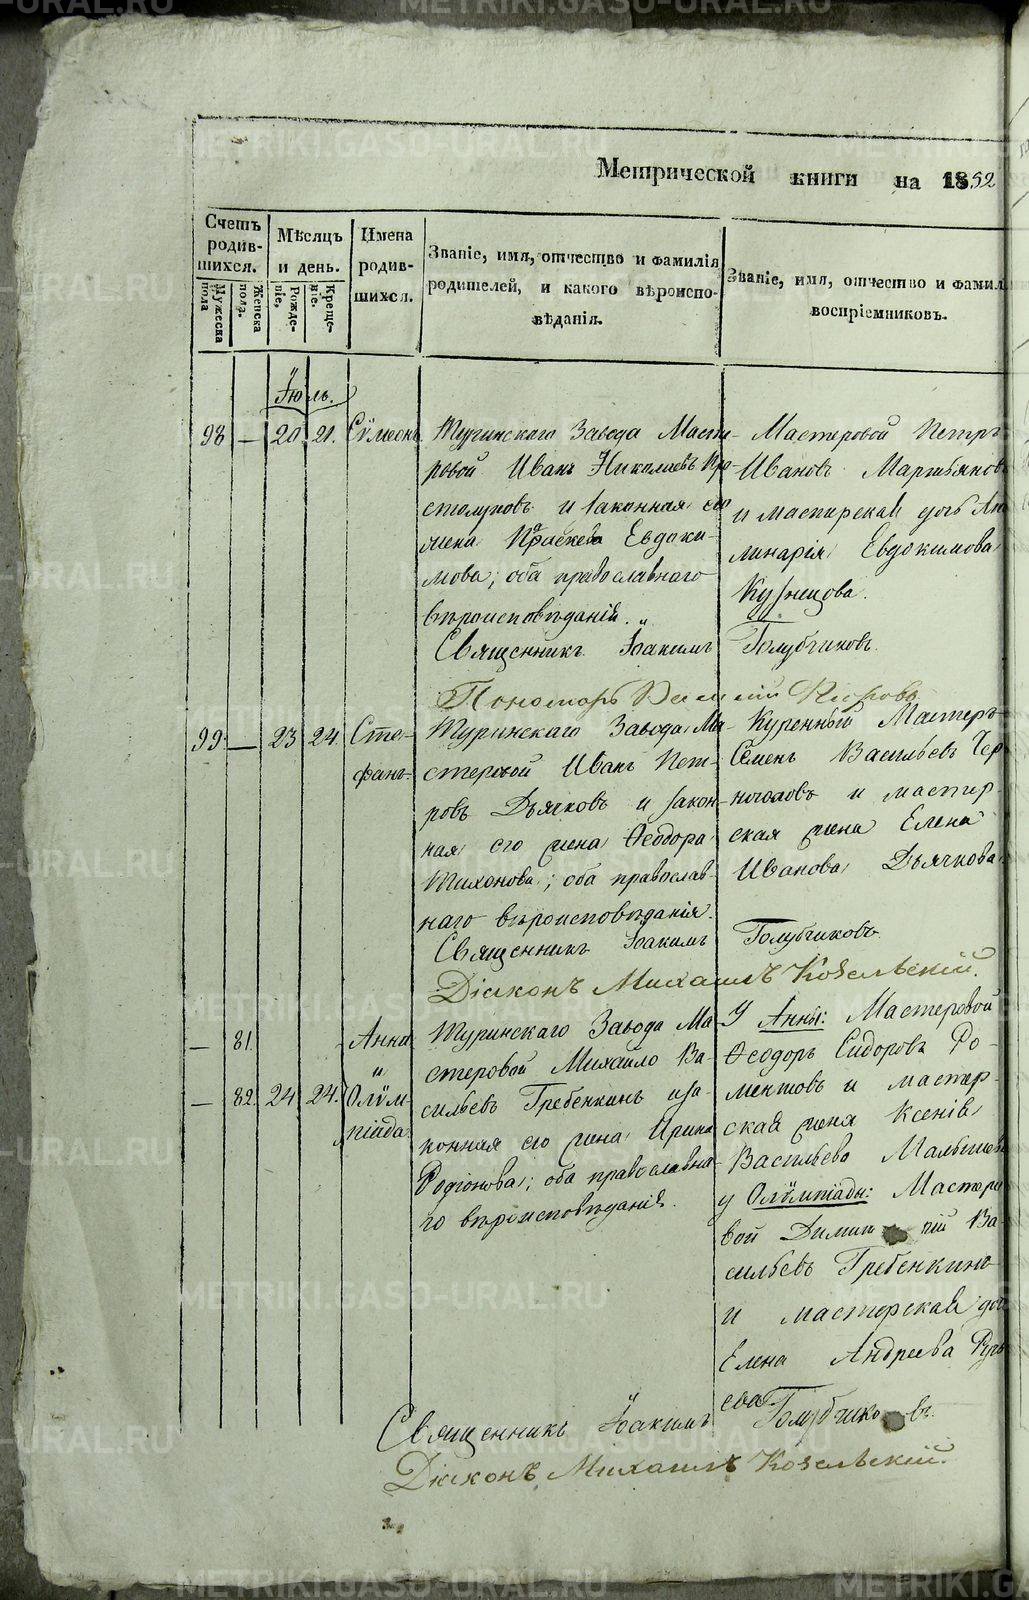 METRIKI.GASO-URAL.RU
Метрической книги на 1852
Счетъ родив-шихся.
Мужеска пола
Женска пола.
Мѣсяцъ и день.
Рожде-ніе,
Креще-ніе.
Имена родив-шихся.
Званіе, имя, отчество и фамилія родителей, и какого вѣроиспо-вѣданія.
Званіе, имя, отчество и фамил
воспріемниковъ.
Іюль.
98 — 20 21. Сѵмеонъ
Туринскаго Завода Масте-
ровой Иванъ Николаевъ Про-
столуповъ и законная его
жена Праскева Евдоки-
мова; оба православнаго
вѣроисповѣданія.
Мастеровой Петръ
Ивановъ Мартьянов
и мастерская дочь Апо
линарія Евдокимова
Кузнецова.
Священникъ Іоакимъ Голубчиковъ.
Пономарь Петровъ
99. — 23 24. Сте-
фанъ.
Туринскаго Завода Ма-
стеровой Иванъ Пет-
ровъ Дьячковъ и закон-
ная его жена Ѳеодора
Тихонова; оба православ-
наго вѣроисповѣданія.
Куренный Мастеръ
Семенъ Васильевъ Чер
ноголовъ и мастер-
ская жена Елена
Иванова Дьячкова
Священникъ Іоакимъ Голубчиковъ.
Діаконъ Михаилъ Козельскій.
— 81. Анна
и
— 82. 24 24. Олѵм-
піада.
Туринскаго Завода Ма
стеровой Михайло Ва-
сильевъ Гребенкинъ и за-
конная его жена Ирина
Родіонова; оба православна-
го вѣроисповѣданія.
У Анны: Мастеровой
Ѳеодоръ Сидоровъ Ро-
ментовъ и мастер-
ская жена Ксенія
Васильева Малышев
у Олѵмпіады: Мастеро
вой Димитрій Ва-
сильевъ Гребенкинъ
и мастерская доч
Елена Андреева
Священникъ Іоакимъ Голубчиковъ.
Діаконъ Михаилъ Козельскій.